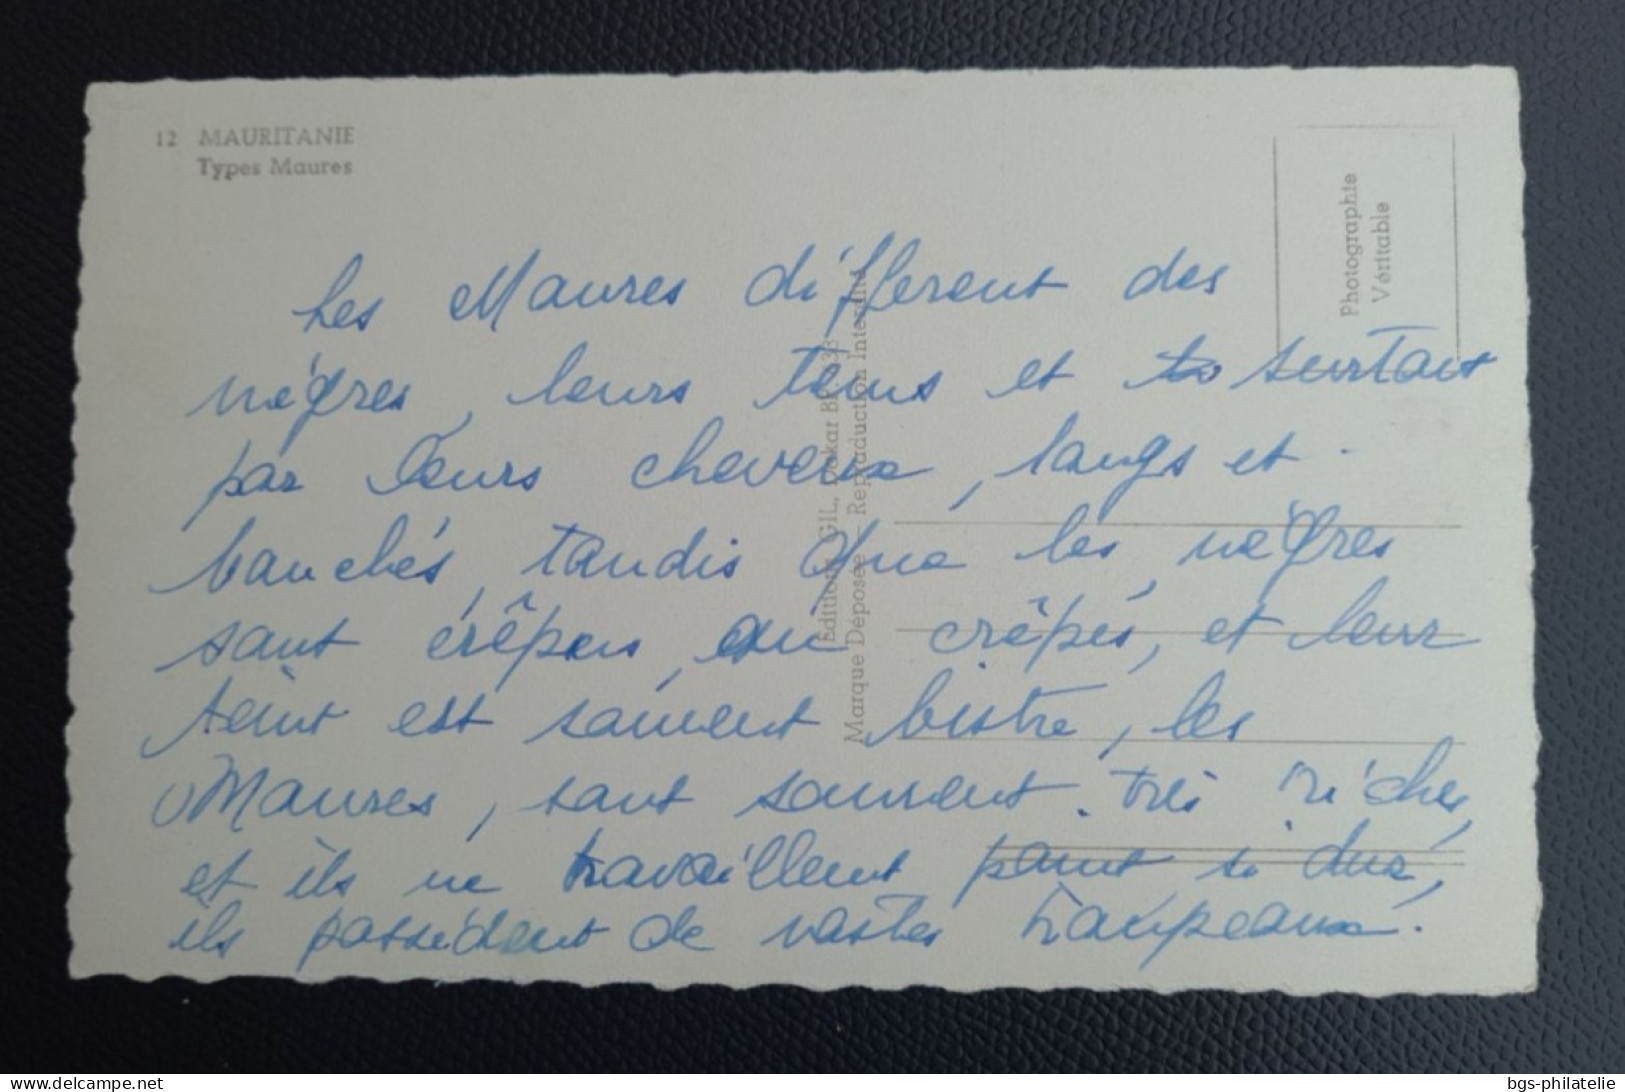 12 MAURITANIE
Types Maures
Photographie
Véritable
Editions GIL, Dakar BP.
Marque Déposée – Reproduction Interdite
Les Maures different des
nègres, leurs teins et surtout
par leurs cheveux, longs et
bouclés, tandis que les nègres
sont crêpés, et leur
teint est souvent bistré, les
Maures, sont souvent très riches,
et ils ne travaillent point si dur,
ils possèdent de vastes troupeaux.
bgs-philatelie